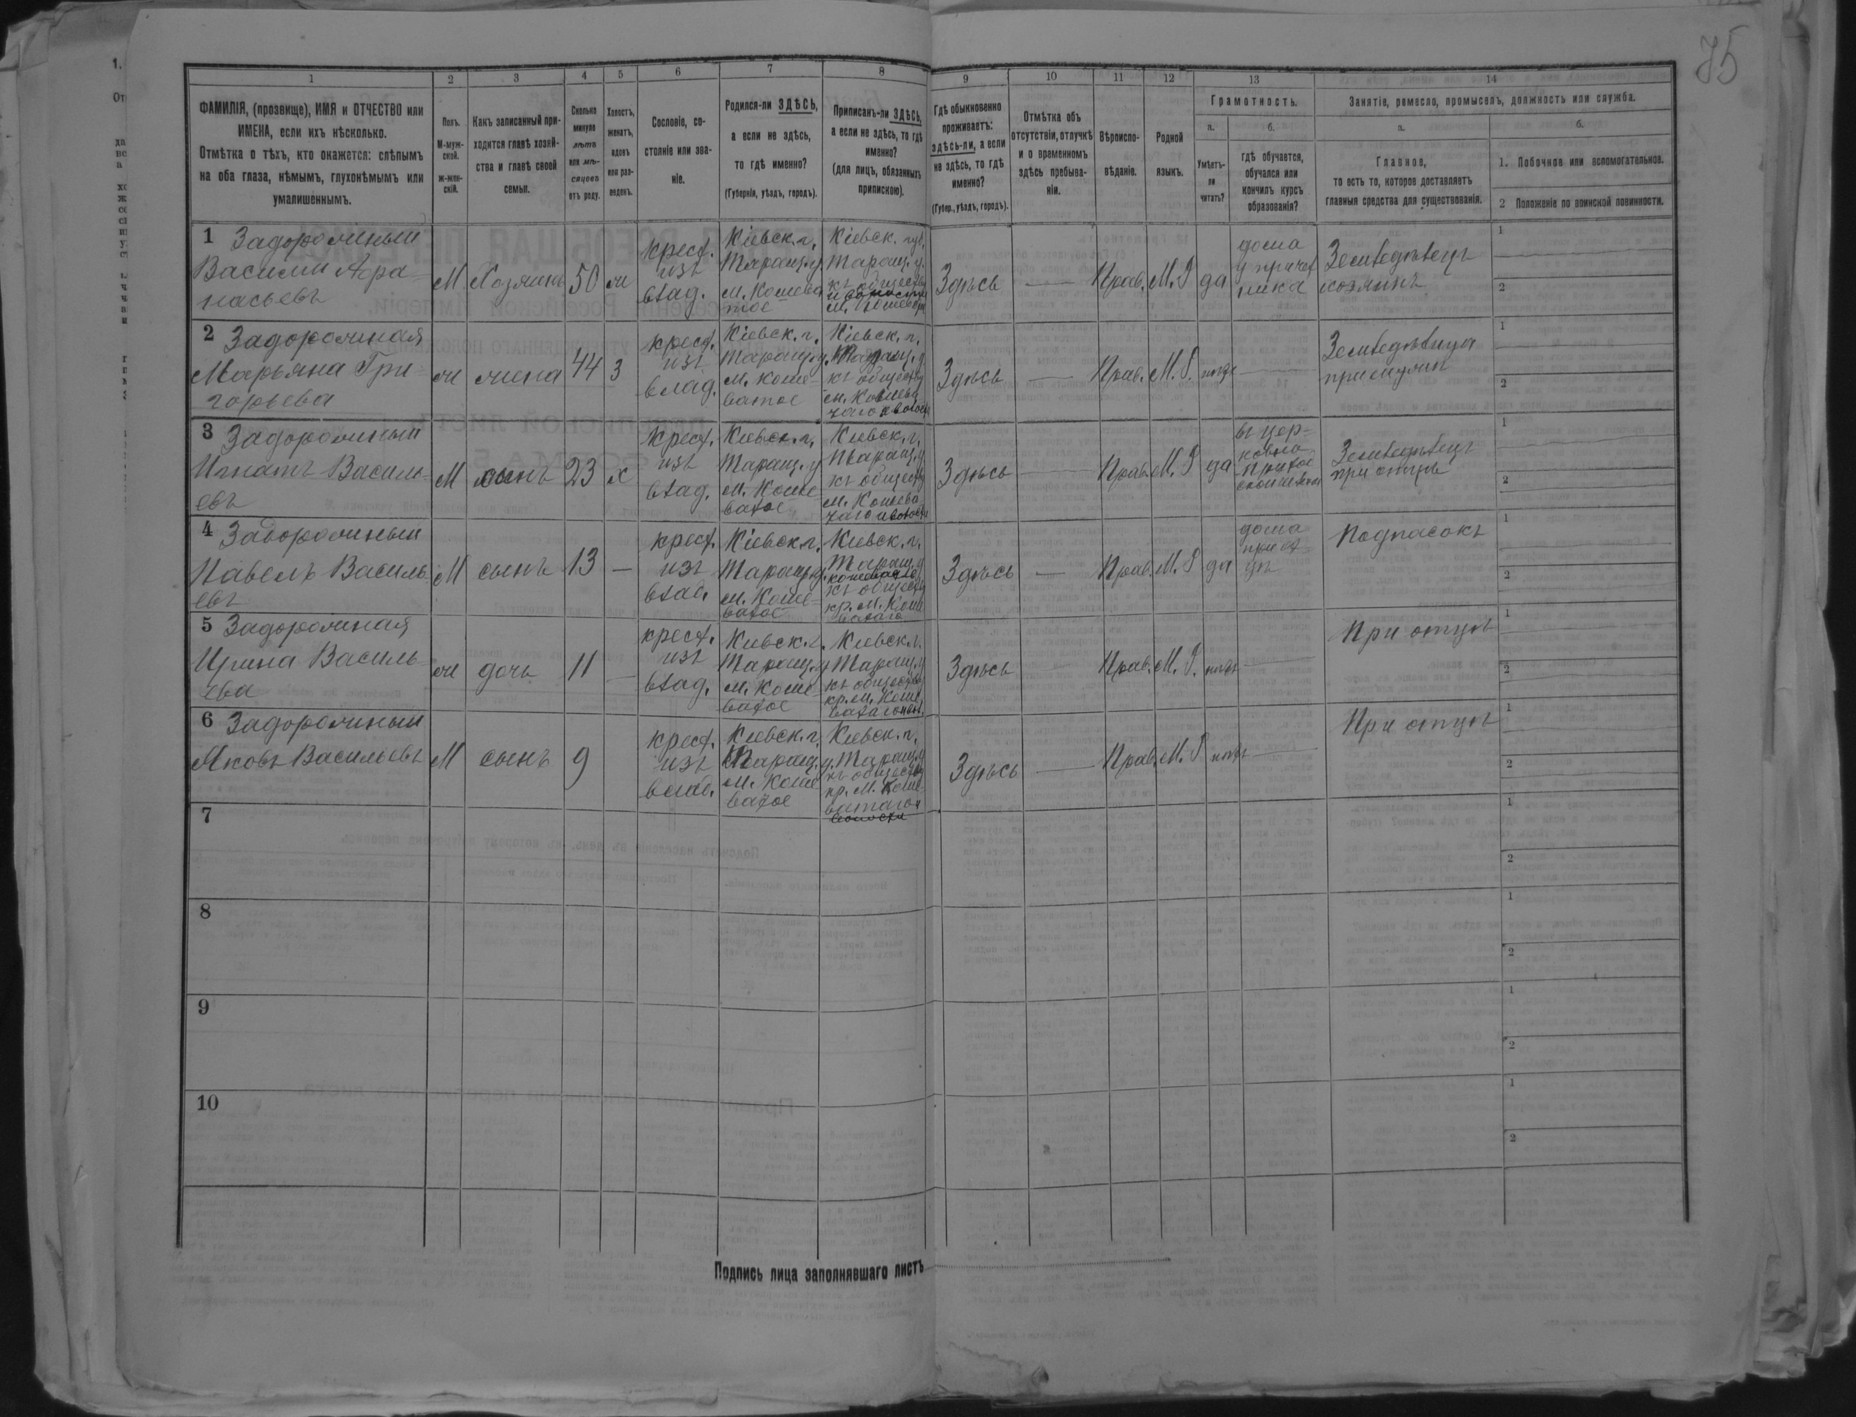 75
1 2 3 4 5 6 7 8 9 10 11 12 13 14
ФАМИЛІЯ, (прозвище), ИМЯ и ОТЧЕСТВО или
ИМЕНА, если ихъ нѣсколько.
Отмѣтка о тѣхъ, кто окажется: слѣпымъ
на оба глаза, нѣмымъ, глухонѣмымъ или
умалишеннымъ.
Полъ.
М-муж-
ской.
ж-жен-
скій.
Какъ записанный при-
ходится главѣ хозяй-
ства и главѣ своей
семьи.
Сколько
минуло
лѣтъ
или мѣ-
сяцевъ
отъ роду.
Холостъ,
женатъ,
вдовъ
или раз-
веденъ.
Сословіе, со-
стояніе или зва-
ніе.
Родился-ли ЗДѢСЬ,
а если не здѣсь,
то гдѣ именно?
(Губернія, уѣздъ, городъ).
Приписанъ-ли ЗДѢСЬ,
а если не здѣсь, то гдѣ
именно?
(для лицъ, обязанныхъ
припискою).
Гдѣ обыкновенно
проживаетъ:
здѣсь-ли, а если
не здѣсь, то гдѣ
именно?
(Губер., уѣздъ, городъ).
Отмѣтка объ
отсутствіи, отлучкѣ
и о временномъ
здѣсь пребыва-
ніи.
Вѣроиспо-
вѣданіе.
Родной
языкъ.
Грамотность.
а.
Умѣетъ-
ли
читать?
б.
гдѣ обучается,
обучался или
кончилъ курсъ
образованія?
Занятіе, ремесло, промыселъ, должность или служба.
а.
Главное,
то есть то, которое доставляетъ
главныя средства для существованія.
б.
1. Побочное или вспомогательное.
2 Положеніе по воинской повинности.
1 Задорожный
Василій Афа-
насьевъ
М
Хозяинъ
50
ж
крест.
изъ
влад.
Кіевск. г.
Таращ. у.
м. Кошева
тое
Кіевск. губ.
Таращ. у.
къ обществу
Здѣсь
Прав.
М. Р
да
дома
у причет
ника
Земледѣлецъ
хозяинъ
2 Задорожная
Марьяна Гри-
горьева
ж
жена
44
З
крест.
изъ
влад.
Кіевск. г.
Таращ. у.
м. Коше-
ватое
Кіевск. г.
Таращ. у
къ обществу
Здѣсь
Прав.
М. Р.
нѣтъ
Земледѣлица
при мужѣ
3 Задорожный
Игнатъ Василь-
евъ
М
сынъ
23
х
крест.
изъ
влад.
Кіевск. г.
Таращ. у
м. Коше
ватое
Кіевск. г.
Таращ. у
къ обществу
Здѣсь
Прав.
М. Р
да
въ цер-
ковно
Земледѣлецъ
при отцѣ
4 Задорожный
Павелъ Василь
евъ
М
сынъ
13
крест.
изъ
влад.
Кіевск. г.
Таращ. у.
м. Коше-
ватое
Кіевск. г.
Таращ. у
къ обществу
кр. м. Коше
ватаго
Здѣсь
Прав.
М. Р
да
дома
Подпасокъ
5 Задорожная
Ирина Василь-
ева
ж
дочь
11
крест.
изъ
влад.
Кіевск. г.
Таращ. у
м. Коше
ватое
Кіевск. г.
Таращ. у
къ обществу
кр. м. Коше
Здѣсь
Прав.
М. Р.
нѣтъ
При отцѣ
6 Задорожный
Яковъ Васильевъ
М
сынъ
9
крест.
изъ
влад.
Кіевск. г.
Таращ. у.
м. Коше
ватое
Кіевск. г.
Таращ. у
къ обществу
кр. м. Коше-
ватаго
Здѣсь
Прав.
М. Р
нѣтъ
При отцѣ
7
8
9
10
Подпись лица заполнявшаго листъ